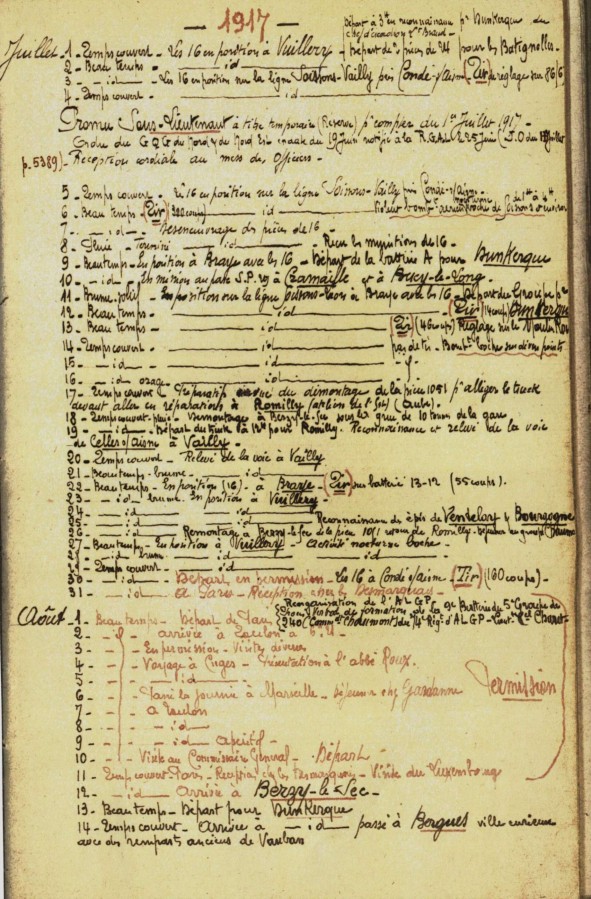 — 1917 —
Départ à 3h en reconnaissance pr Dunkerque du
Juillet 1 - Temps couvert - Les 16 en position à Vuillery - Départ de 2 pièces de 24 pour les Batignolles -
2 - Beau temps - id -
3 - id - Les 16 en position sur la ligne Soissons-Vailly près Condé s/aisne (Tir) de réglage sur 86/6
4 - Temps couvert - id
Promu Sous-Lieutenant à titre temporaire (Réserve) pr compter du 1er Juillet 1917 -
Ordre du G.Q.G. du Nord du 19 Juin notifié à la R.G.A.L. 25 Juin (J.O. du Juillet
p. 5389) - Réception cordiale au mess des Officiers -
5 - Temps couvert - 16 en position sur la ligne Soissons-Vailly près Condé s/aisne -
6 - Beau temps (Tir) (322 coups) - id - boche de Soissons et environs
7 - id - Desencuvrage des pièces de 16 -
8 - Pluie - Tournée - id - Reçu les munitions de 16 -
9 - Beau temps - En position à Braye avec les 16 - Départ de la batterie A pour Dunkerque
10 - id - En mission au parc S.P. 29 à Cramaille et à Bucy-le-Long -
11 - Brume - En position sur la ligne Soissons-Laon à Braye avec les 16 - Départ du Groupe pr
12 - Beau temps - id - (Tir) (14 coups) Dunkerque
13 - Beau temps - id - (Tir) (46 coups) Réglage sur le Moulin
14 - Temps couvert - id - pas de tir - Bombt boche sur divers points
15 - id -
16 - id - orage - id
17 - Temps couvert - Préparatifs en vue du démontage de la pièce 1051 pr alléger le truck
devant aller en réparations à Romilly (Aube) -
18 - Temps couvert - pluie - Démontage à Berzy-le-Sec sous la grue de 10 tonnes de la gare
19 - id - Départ du truck à 12h pour Romilly. Reconnaissance et relevé de la voie
de Celles s/aisne à Vailly -
20 - Temps couvert - Relevé de la voie à Vailly
21 - Beau temps - brume - id
22 - Beau temps - En position (16) - à Braye - (Tir) sur batterie 13-12 (55 coups).
23 - id - brume. En position à Vuillery -
24 - id - id
25 - id - id - Reconnaissance des épis de Venizel et Bourgogne
26 - id - Remontage à Berzy-le-Sec de la pièce 1051 venue de Romilly -
27 - Beau temps - En position à Vuillery - activité nocturne boche -
28 - id - brume - id
29 - Temps couvert - id
30 - id - Départ en permission - Les 16 à Condé s/aisne (Tir) (160 coups) -
31 - id - à Paris - Réception chez les Desmarquais -
Août 1 - Beau temps - Départ de Paris - Réorganisation de l'A L G P
formation de la 9e Batterie du 5e Groupe de
240 (Commt Chaumont) du 74e Régt d'A L G P - Lieut.
2 - id - arrivée à Toulon à
3 - En permission - Visites diverses
4 - Voyage à Cuges - Présentation à l'abbé Roux.
5 - id
6 - Passé la journée à Marseille - Déjeuner chez Gardanne
Permission
7 - à Toulon
8 - id
9 - id - Apéritif -
10 - Visite au Commissaire Général - Départ
11 - Temps couvert Paris - Réception chez les Desmarquais - Visite du Luxembourg
12 - id - Arrivée à Berzy-le-Sec -
13 - Beau temps - Départ pour Dunkerque
14 - Temps couvert - Arrivée à - id - passé à Bergues ville curieuse
avec des remparts anciens de Vauban